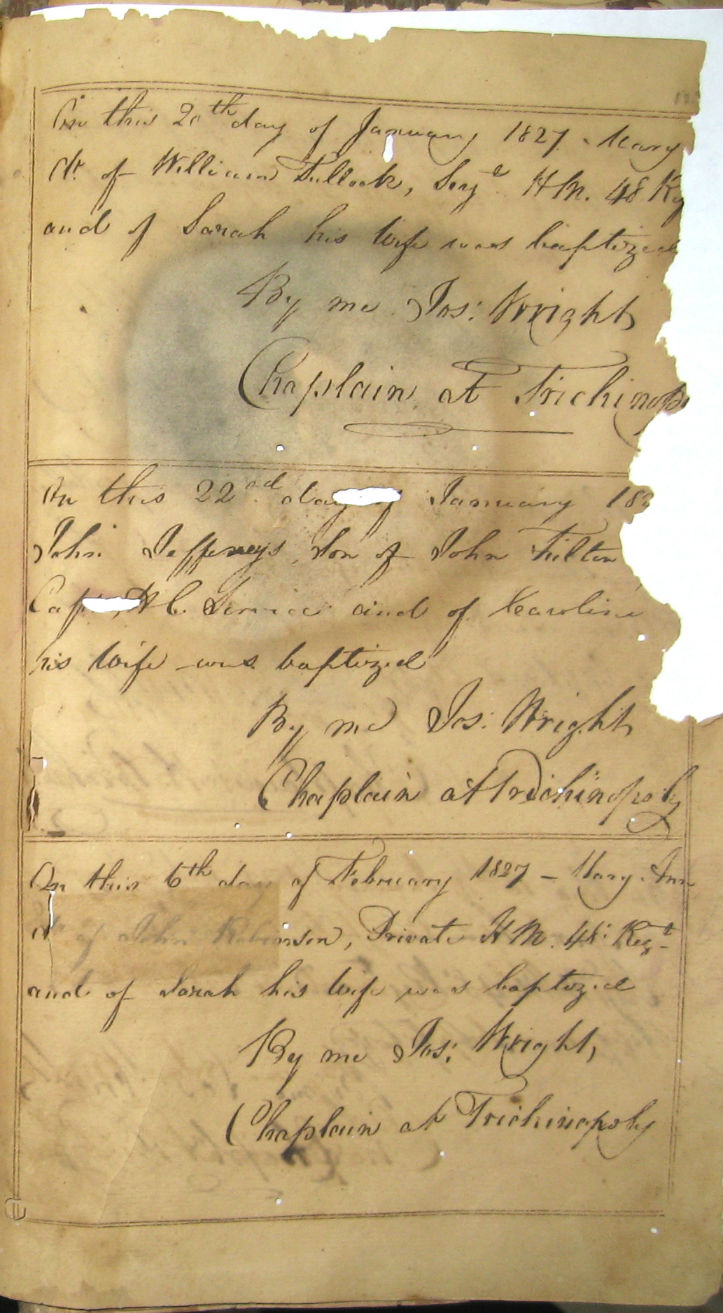 On this 20th day of January 1827 - Mary
dr. of William Tullock, Serjt H.M. 48 Rg
and of Sarah his wife was baptized
By me Jos: Wright
Chaplain at Trichinop
On this 22nd day of January 182
John Jeffreys, Son of John Fulton
Capt. H.C. Service and of Caroline
his wife was baptized
By me Jos: Wright
Chaplain at Trichinopoly
On this 6th day of February 1827 - Mary Ann
dr. of John Robinson, Private H.M. 48: Regt-
and of Sarah his wife was baptized
By me Jos: Wright,
Chaplain at Trichinopoly